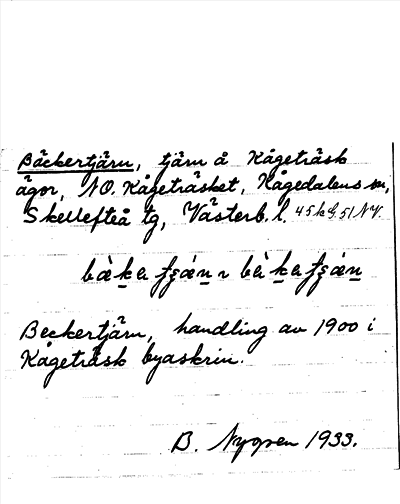 Bäckertjärn, tjärn å Kågeträsk
ägor, NO. Kågeträsket, Kågedalens sn,
Skellefteå tg, Västerb. l. 45 k G, 51 NV.
Beckertjärn, handling av 1900 i
Kågeträsk byaskrin.
B. Nygren 1933.